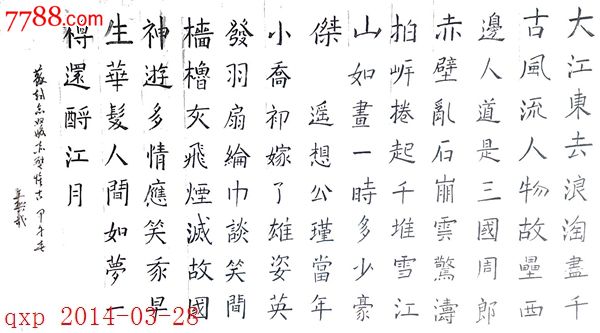 7788.com
大江東去浪淘盡千
古風流人物故壘西
邊人道是三國周郎
赤壁亂石崩雲驚濤
拍岸捲起千堆雪江
山如畫一時多少豪
傑 遥想公瑾當年
小喬初嫁了雄姿英
發羽扇綸巾談笑間
檣櫓灰飛煙滅故國
神遊多情應笑我早
生華髮人間如夢一
樽還酹江月
蘇軾念奴嬌赤壁懷古 甲午春
qxp 2014-03-28